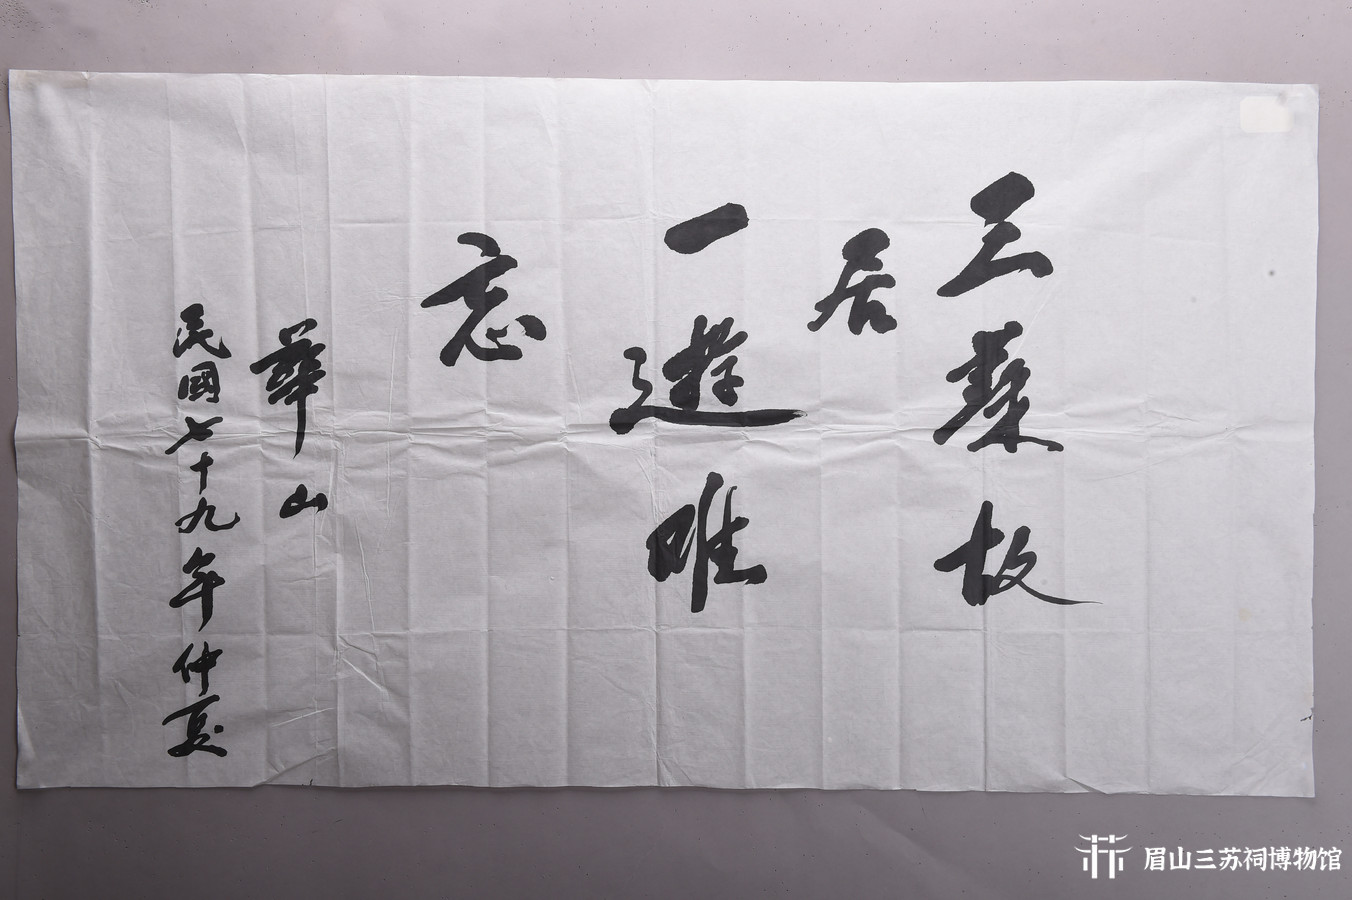 三蘇故
居
一遊唯
忘
華山
民國七十九年仲夏
眉山三苏祠博物馆